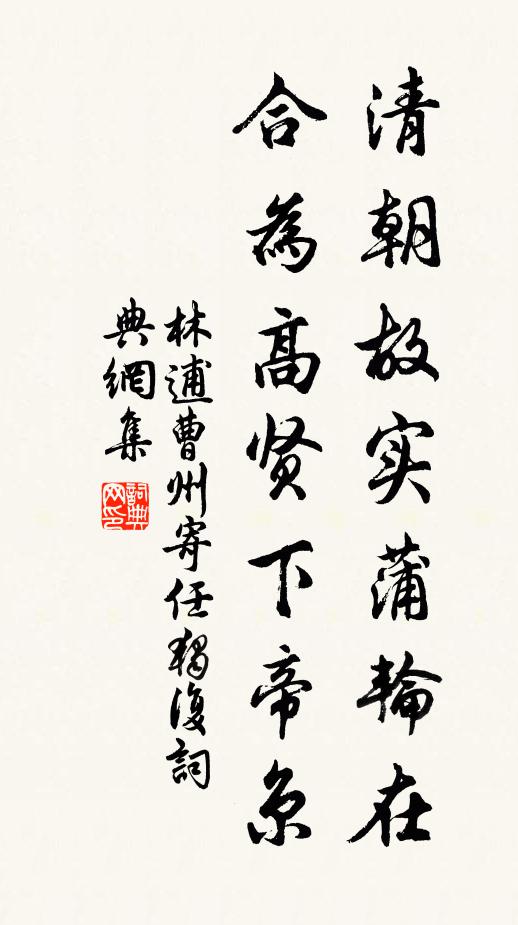 清朝故实蒲輪在
合為高贤下帝京
林逋曹州寄任獨復詞
典網集
詞典网印